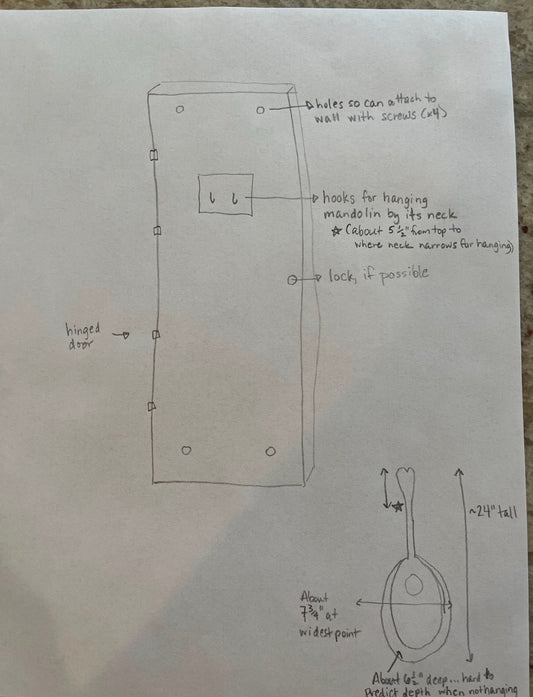 holes so can attach to
wall with screws (x4)
hooks for hanging
mandolin by its neck
★ (about 5 1/2" from top to
where neck narrows for hanging)
lock, if possible
hinged
door
★
~24" tall
About
7 3/4" at
widest point
About 6 1/2" deep... hard to
predict depth when not hanging